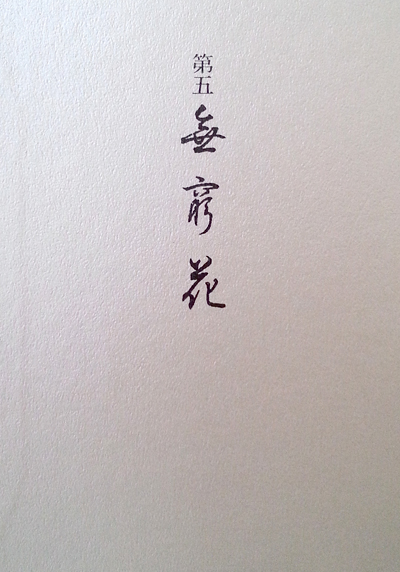 第五
無窮花